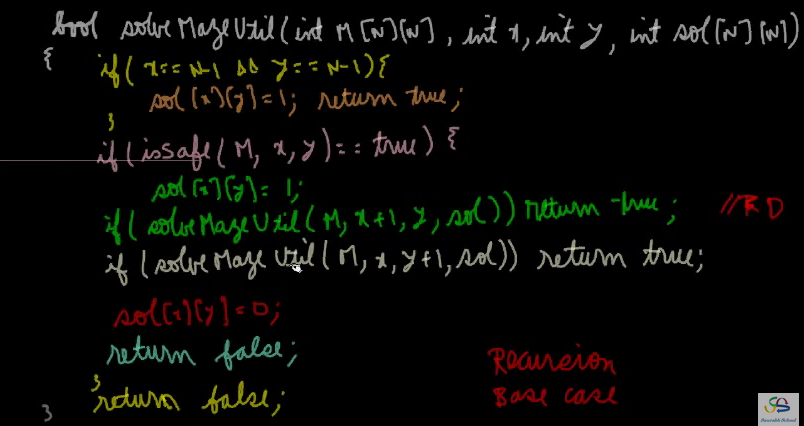 bool solveMazeUtil(int M[N][N], int x, int y, int sol[N][N])
{
if( x==N-1 && y==N-1){
sol[x][y]=1; return true;
}
if(issafe(M,x,y)==true) {
sol[x][y]=1;
if( solveMazeUtil(M,x+1,y,sol)) return true; //RD
if (solveMazeUtil(M,x,y+1,sol)) return true;
sol[x][y]=0;
return false;
}
return false;
}
Recursion
Base case